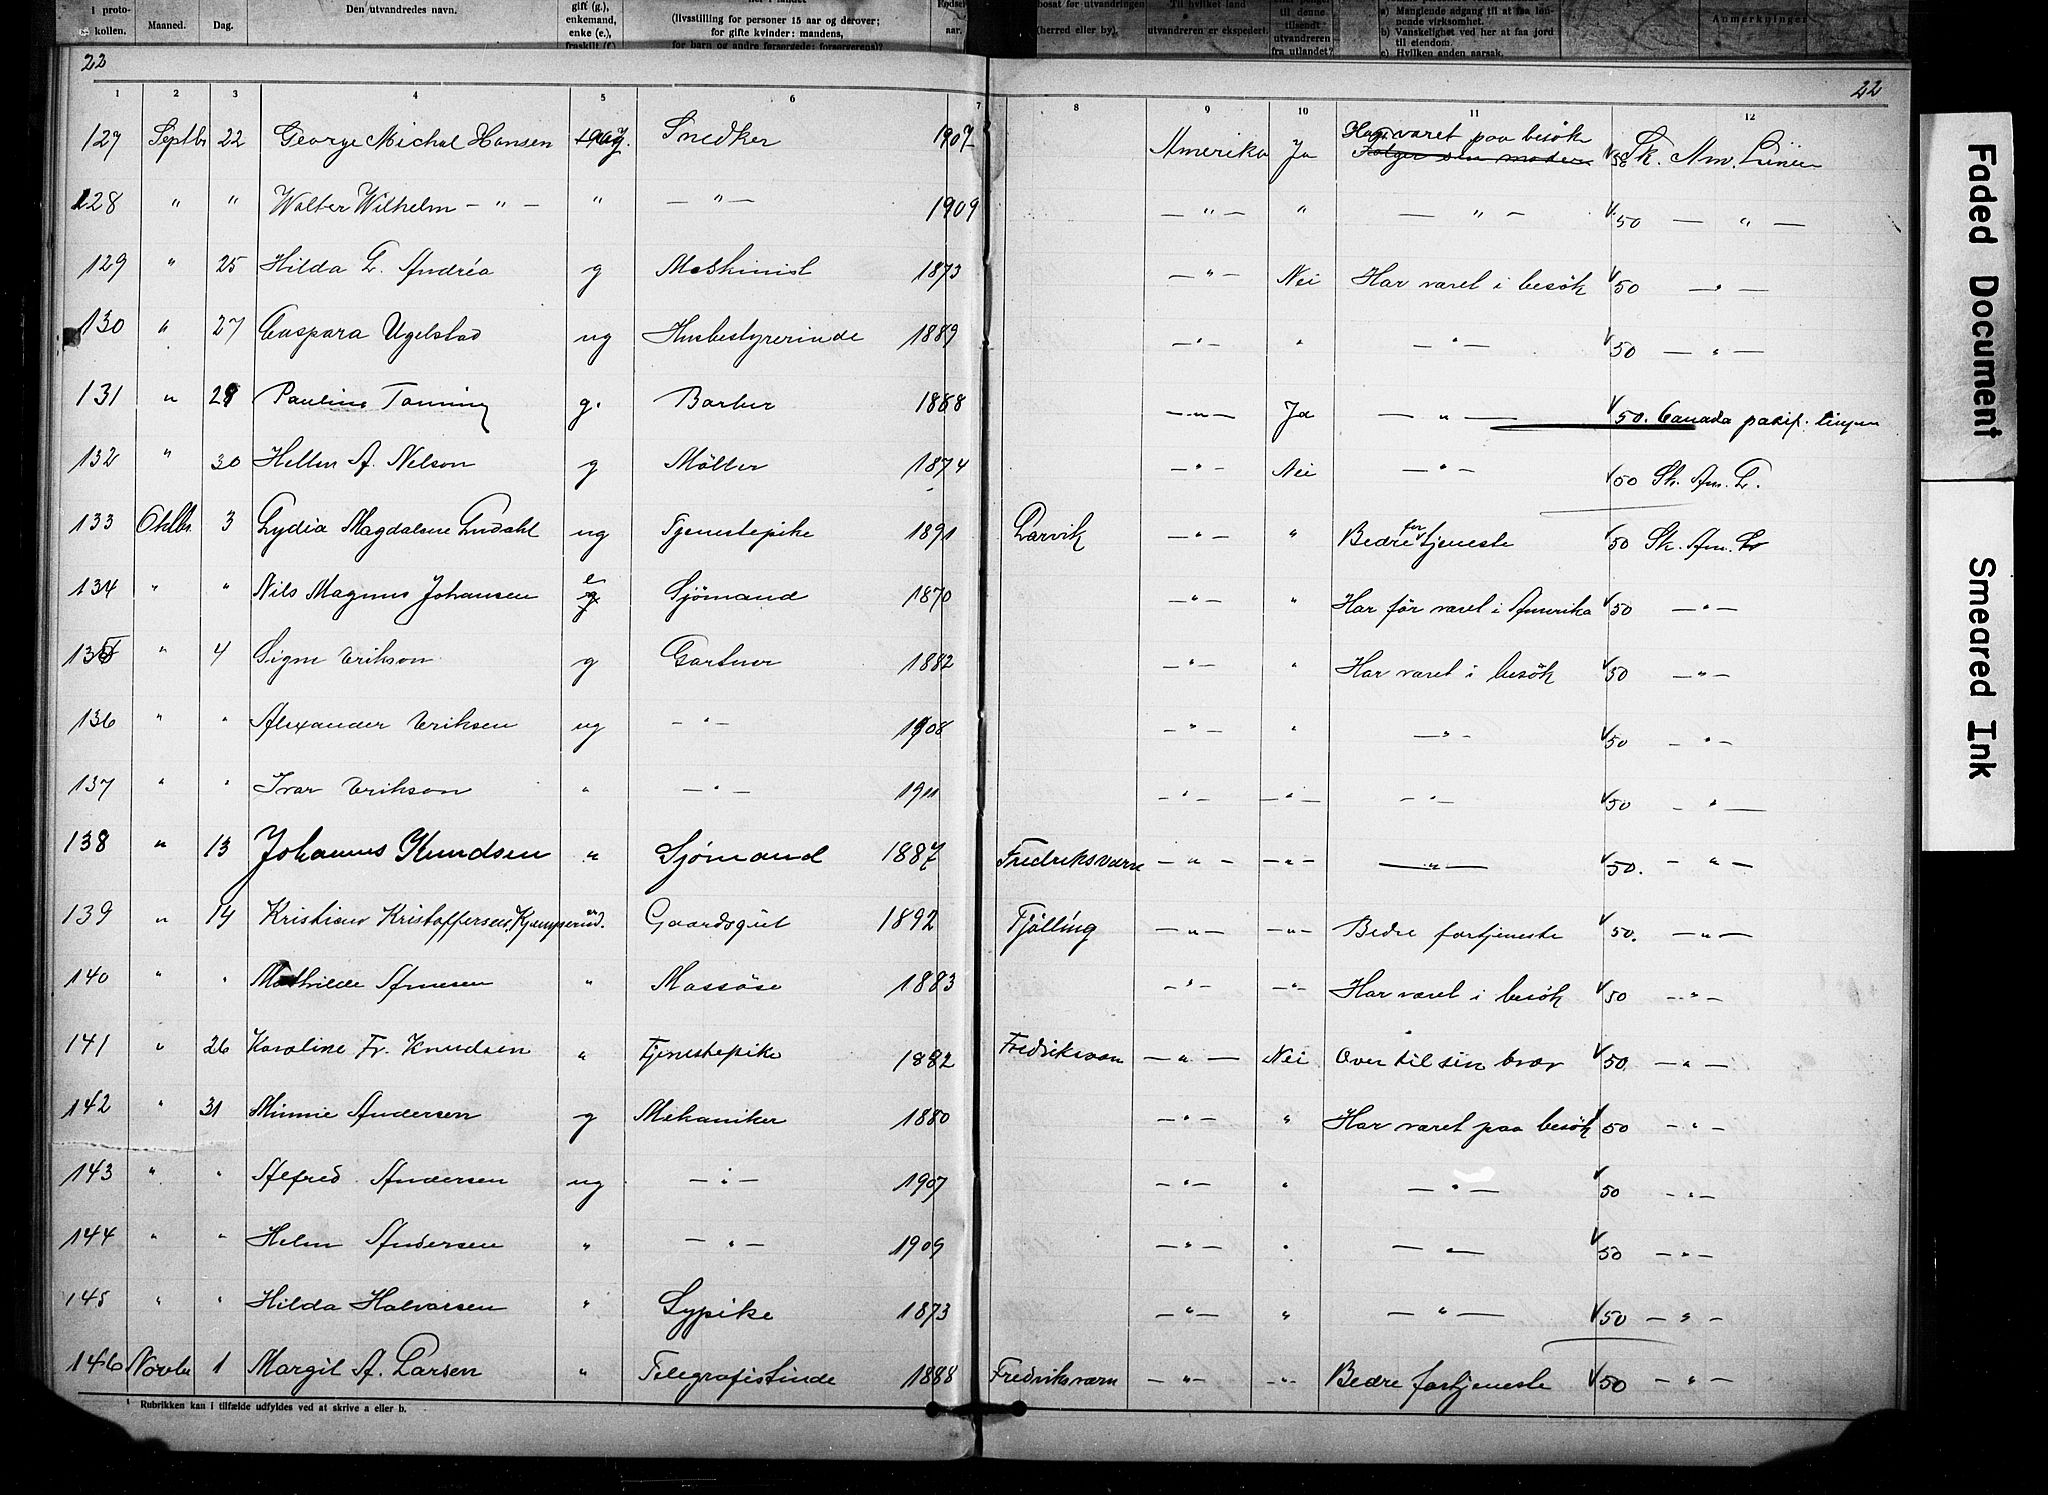 i proto-
kollen.
Maaned.
Dag.
Den utvandredes navn.
gift (g.),
enkemand,
enke (e.),
fraskilt (f.)
(livsstilling for personer 15 aar og derover;
for gifte kvinder: mandens,
for barn og andre forsørgede: forsørgerens)?
Fødsels-
aar.
bosat før utvandringen
(herred eller by).
Til hvilket land
utvandreren er ekspedert.
til denne
tilsendt
utvandreren
fra utlandet?
a) Manglende adgang til at faa løn-
nende virksomhet.
b) Vanskelighet ved her at faa jord
til eiendom.
c) Hvilken anden aarsak.
Anmerkninger
22
22
1 2 3 4 5 6 7 8 9 10 11 12
127 Septbr 22 George Michal Hansen ug. Snedker 1907 Amerika Ja Har været paa besök Følger sin moder 50 Sk. Am. Linien
128 " " Walter Wilhelm — " — " — " — 1909 — " — " — " — 50 — " —
129 " 25 Hilda L. Andréa g Maskinist 1873 — " — Nei Har været i besök 50 — " —
130 " 27 Caspara Ugelstad ug Husbestyrerinde 1889 — " — " — " — 50 — " —
131 " 28 Pauline Tanning g. Barber 1868 — " — Ja — " — 50. Canada pacif. linjen
132 " 30 Hellen A. Nelson g Möller 1874 — " — Nei — " — 50 Sk. Am. L.
133 Oktbr. 3 Lydia Magdalene Lndahl ug Tjenestepike 1891 Larvik — " — " Bedre fortjeneste 50 Sk. Am. L
134 " " Nils Magnus Johansen e g Sjömand 1870 — " — " Har för været i Amerika 50 — " —
135 " 4 Signe Erikson g Gartner 1882 — " — " Har været i besök 50 — " —
136 " " Alexander Eriksen ug — " — 1908 — " — " — " — 50 — " —
137 " " Ivar Erikson " — " — 1911 — " — — " — — " — 50 — " —
138 " 13 Johannes Knudsen " Sjömand 1887 Fredriksværn — " — — " — — " — 50. — " —
139 " 14 Kristian Kristoffersen Kjæmperud. " Gaardsgut 1892 Tjölling — " — — " — Bedre fortjeneste 50. — " —
140 " " Mathilde Arnesen " Massöse 1883 — " — — " — Har været i besök 50 — " —
141 " 26 Karoline Fr. Knudsen " Tjenestepike 1882 Fredriksvæn — " — Nei Over til sin bror 50 — " —
142 " 31 Minnie Andersen g Mekaniker 1880 — " — " Har været paa besök 50 — " —
143 " " Alfred Andersen ug — " — 1907 — " — " — " — 50 — " —
144 " " Helen Andersen " — " — 1909 — " — " — " — 50 — " —
145 " " Hilda Halvorsen " Sypike 1873 — " — " — " — 50 — " —
146 Novbr 1 Margit A. Larsen " Telegrafistinde 1888 Fredriksværn — " — — " — Bedre fortjeneste 50 — " —
¹ Rubrikken kan i tilfælde udfyldes ved at skrive a eller b.
Faded Document
Smeared Ink